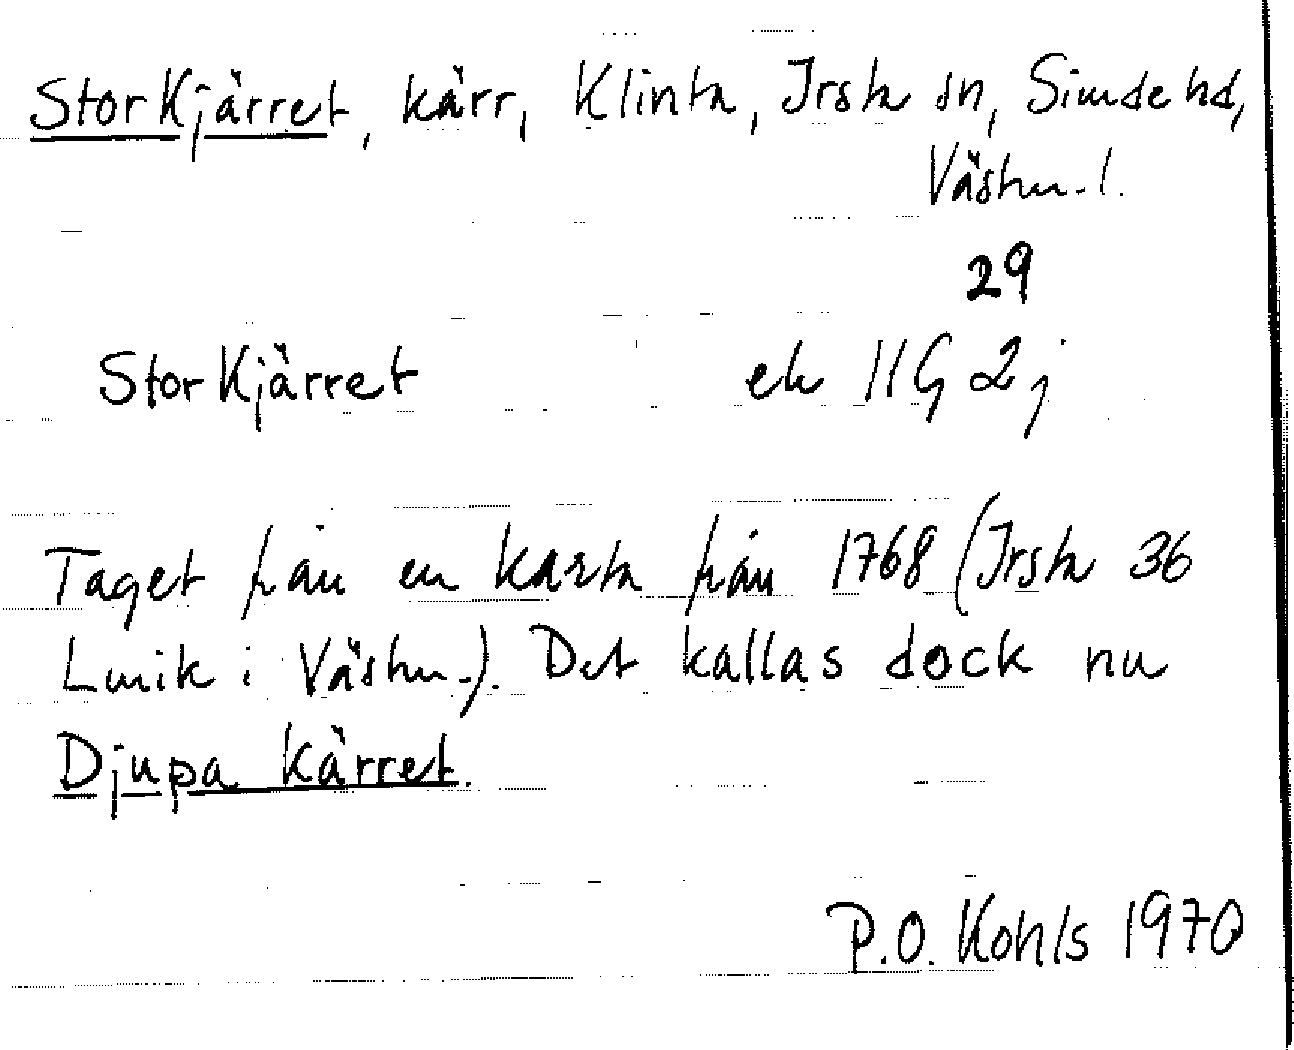 Stor Kjärret, kärr, Klinta, Irsta sn, Siende hd,
Västm. l.
29
Stor Kjärret ek 11G 2j
Taget från en karta från 1768 (Irsta 36
Lmik i Västm.). Det kallas dock nu
Djupa kärret.
P.O. Kohls 1970